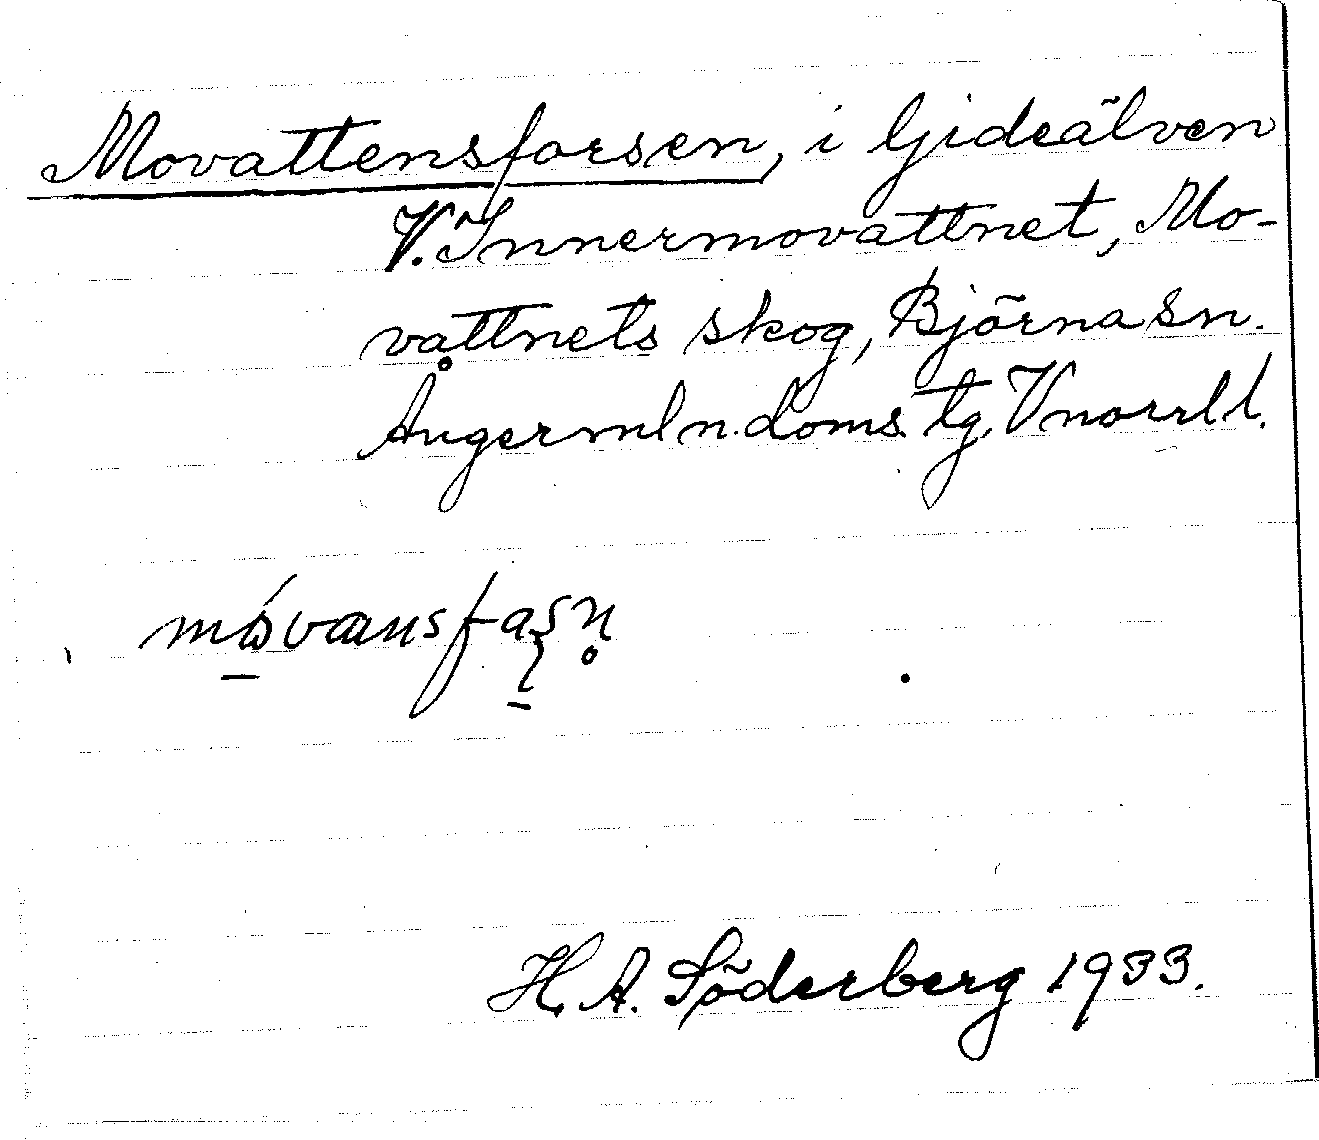 Movattensforsen, i Gideälven
V. Innermovattnet, Mo-
vattnets skog, Björna sn.
Ångermln. doms. tg. Vnorrl l.
H. A. Söderberg 1933.